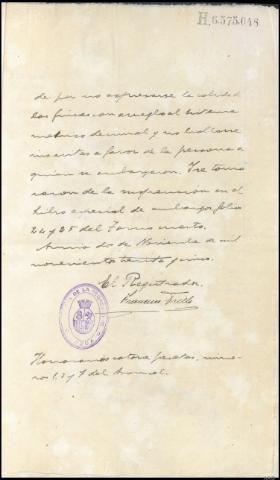 H,6.575.048
de por no expresarse la cabida de
las fincas con arreglo al sistema
metrico decimal y no hallarse
inscritas a favor de la persona a
quien se embargaron. Se tomó
razon de la suspension en el
libro especial de embargos folios
24 y 25 del Tomo cuarto.
dos de Noviembre de mil
novecientos treinta
El Registrador,
Francisco
Honorarios catorce pesetas, nume-
ros 1, 3 y 7 del Arancel.